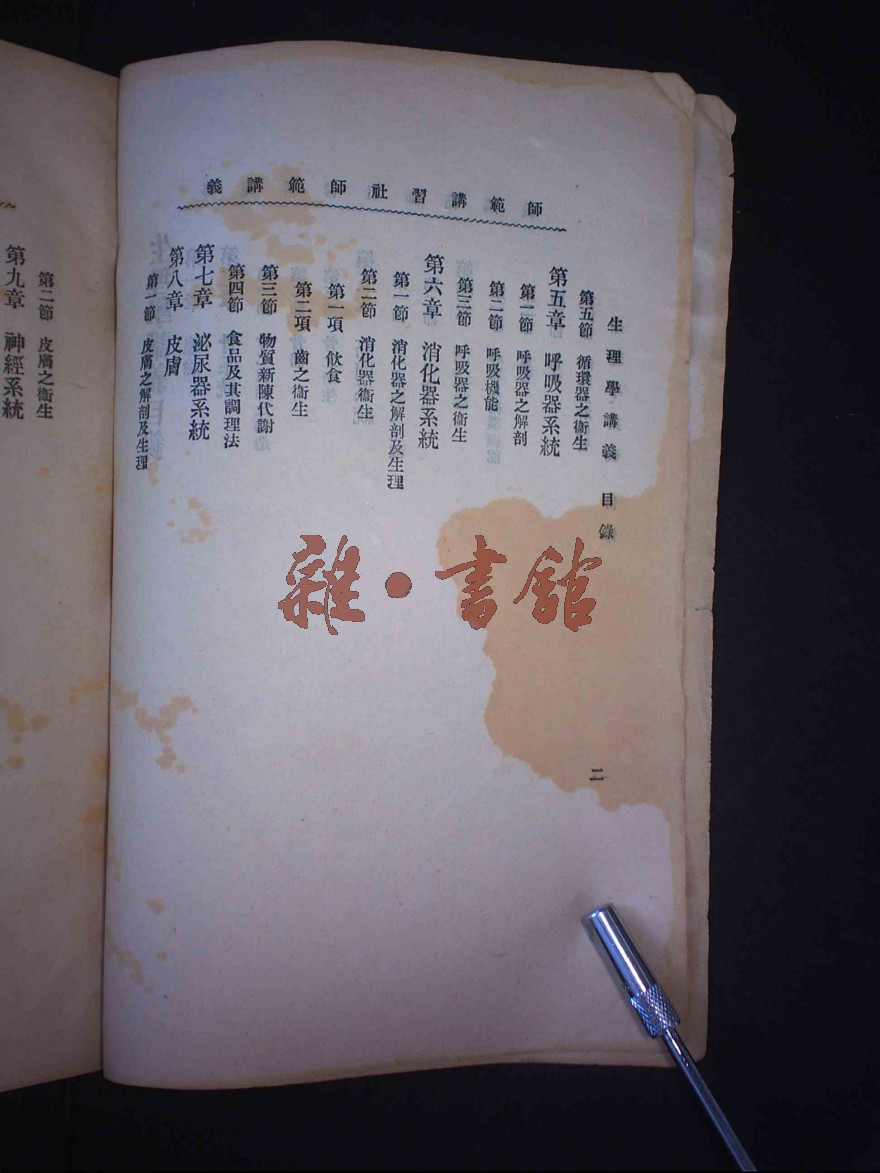 師範講習社師範講義
生理學講義 目錄
二
第五節 循環器之衞生
第五章 呼吸器系統
第一節 呼吸器之解剖
第二節 呼吸機能
第三節 呼吸器之衞生
第六章 消化器系統
第一節 消化器之解剖及生理
第二節 消化器衞生
第一項 飲食
第二項 齒之衞生
第三節 物質新陳代謝
第四節 食品及其調理法
第七章 泌尿器系統
第八章 皮膚
第一節 皮膚之解剖及生理
第二節 皮膚之衞生
第九章 神經系統
雜·書館